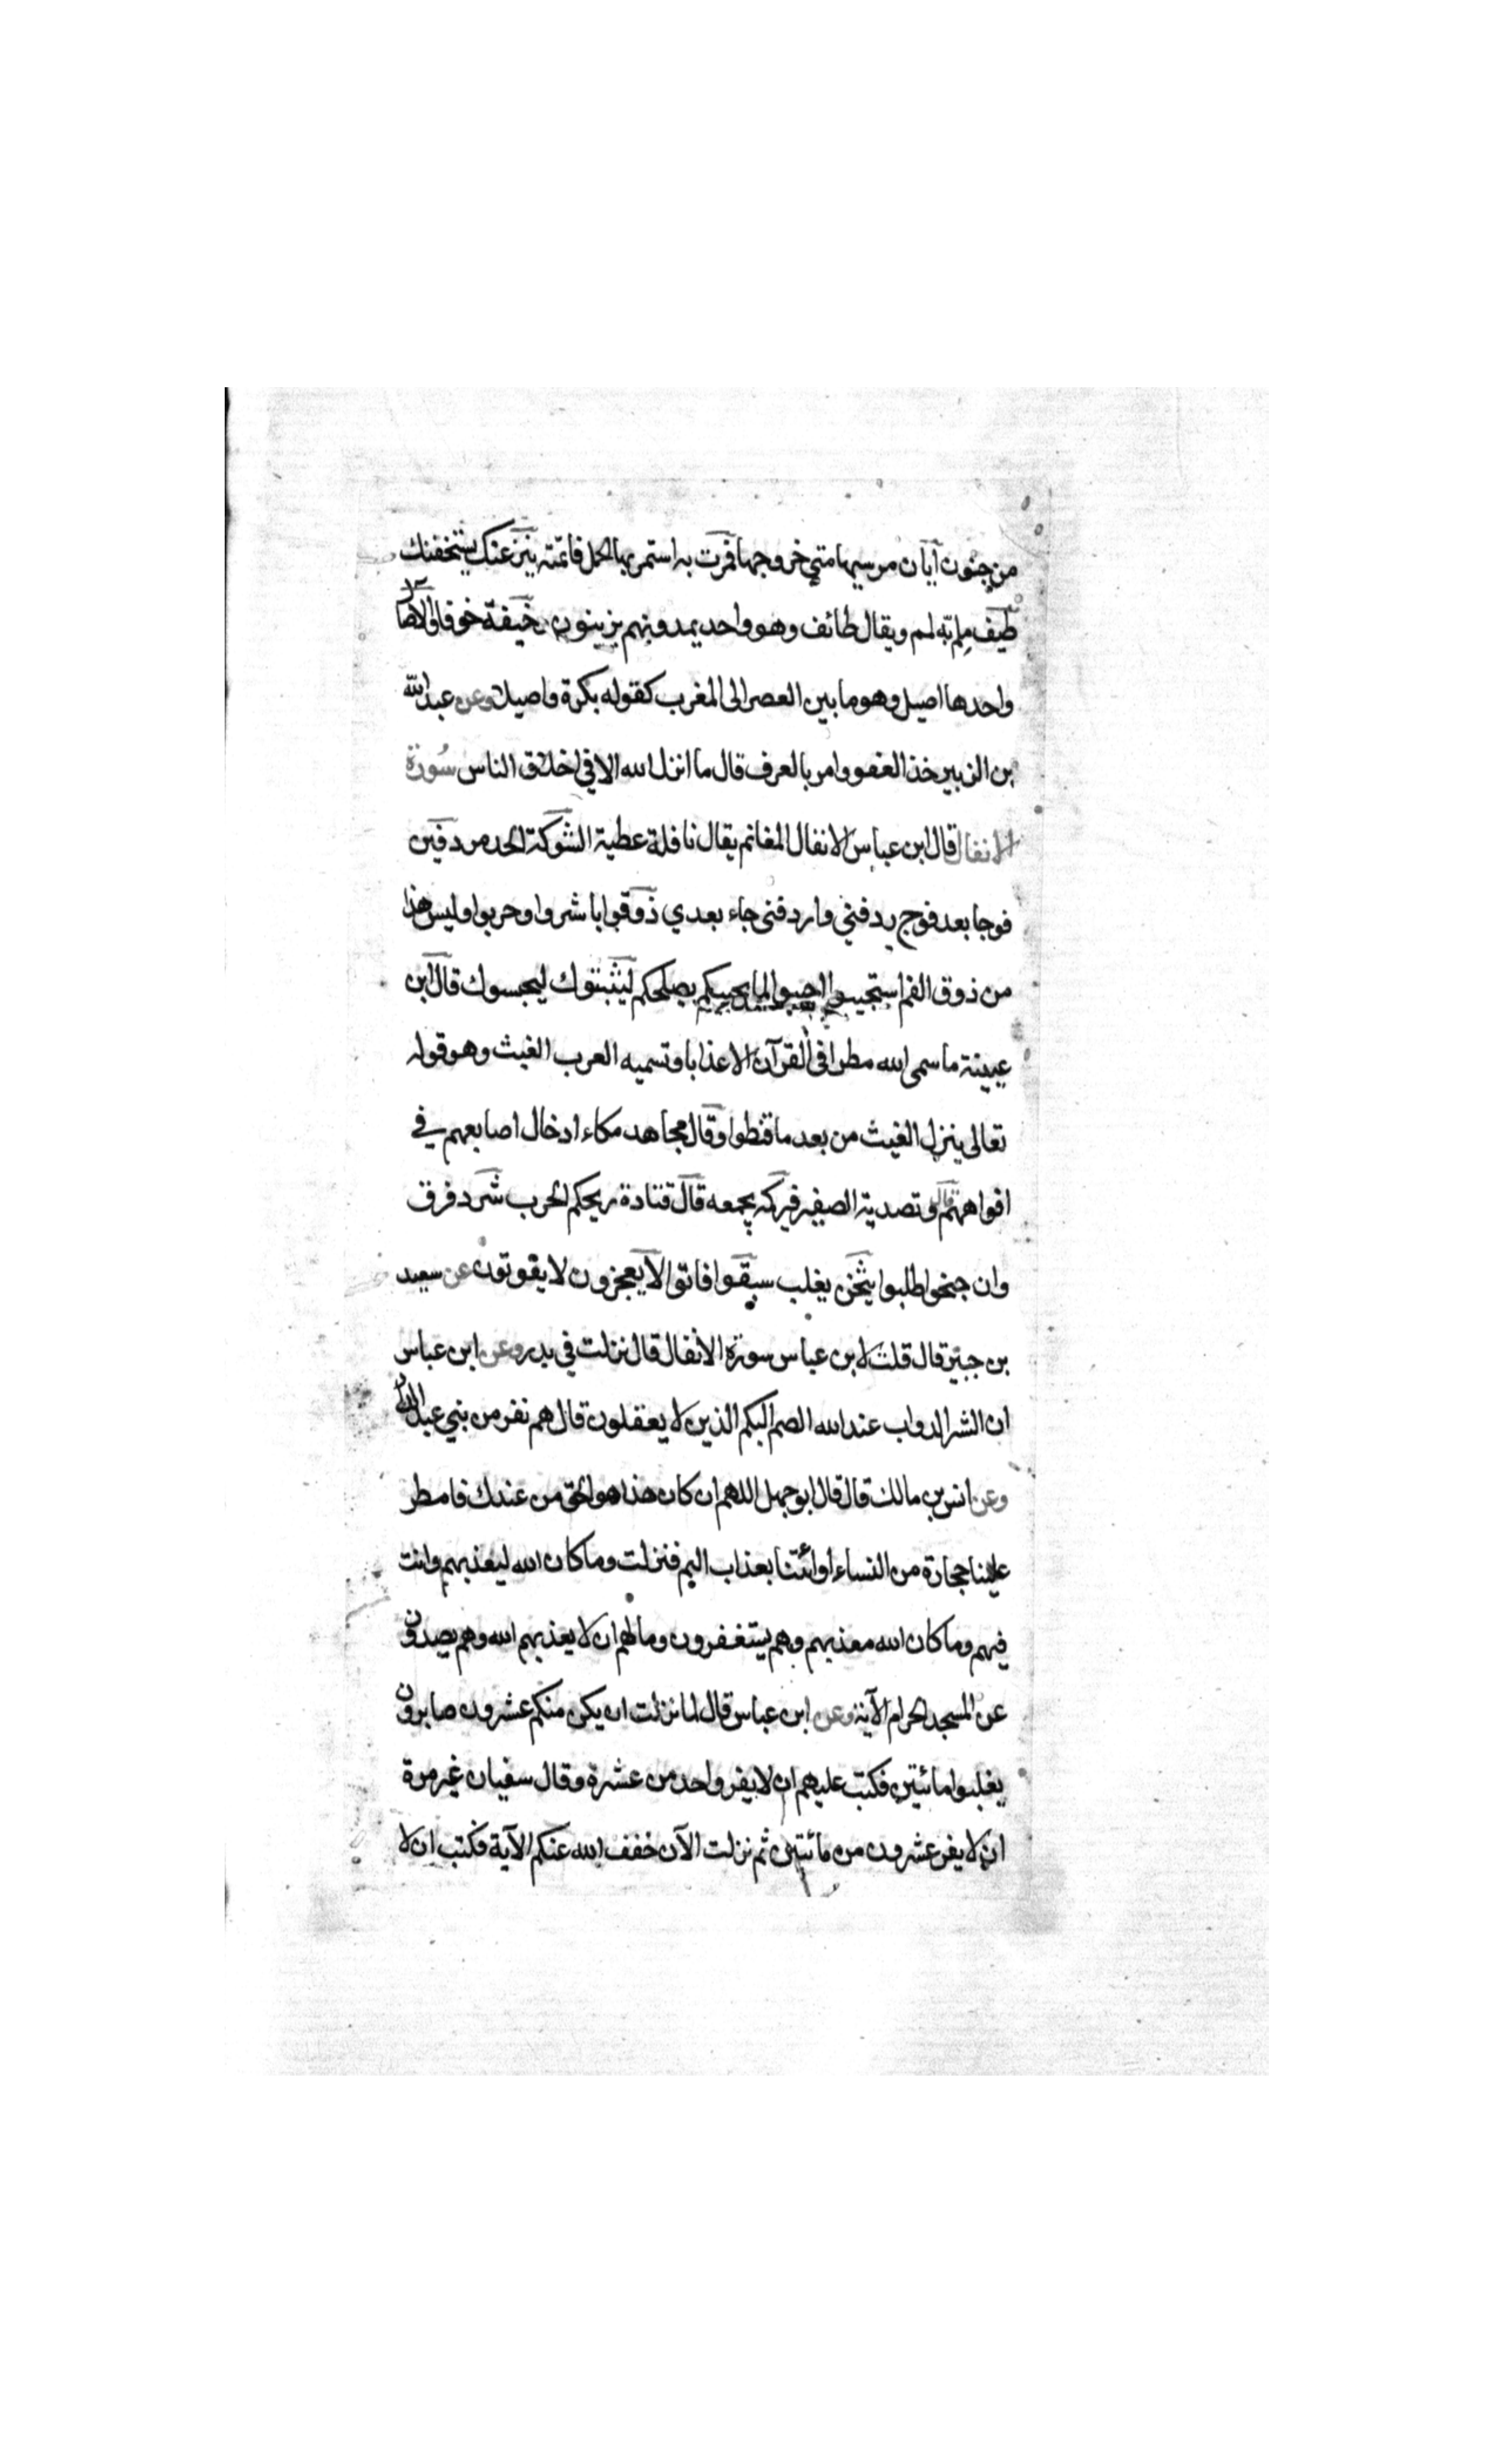 من جنون آيان مرسيها متى خروجها فمرت به استمر بها الحمل فاتمته ينزغنك يستخفنك
طيف ملم به لمم ويقال طائف وهو واحد يمدونهم يزينون خيفة خوفا والآصال
واحدها اصيل وهو ما بين العصر الى المغرب كقوله بكرة واصيلا وعن عبد الله
بن الزبير خذ العفو وامر بالعرف قال ما انزل الله الا في اخلاق الناس سورة
الانفال قال ابن عباس الانفال المغانم يقال نافلة عطية الشوكة الحد مردفين
فوجا بعد فوج ردفني واردفني جاء بعدي ذوقوا باشروا وجربوا وليس هذا
من ذوق الفم استجيبوا اجيبوا لما يحييكم يصلحكم ليثبتوك ليحبسوك قال ابن
عيينة ما سمى الله مطرا في القرآن الا عذابا وتسميه العرب الغيث وهو قوله
تعالى ينزل الغيث من بعد ما قنطوا وقال مجاهد مكاء ادخال اصابعهم في
افواههم قال وتصدية الصفير فيركه يجمعه قال قتادة ريحكم الحرب شرد فرق
وان جنحوا طلبوا يثخن يغلب سبقوا فاتوا لا يعجزون لا يفوتون عن سعيد
بن جبير قال قلت لابن عباس سورة الانفال قال نزلت في بدر وعن ابن عباس
ان الشر الدواب عند الله الصم البكم الذين لا يعقلون قال هم نفر من بني عبد الدار
وعن انس بن مالك قال قال ابو جهل اللهم ان كان هذا هو الحق من عندك فامطر
علينا حجارة من النساء او ائتنا بعذاب اليم فنزلت وما كان الله ليعذبهم وانت
فيهم وما كان الله معذبهم وهم يستغفرون وما لهم ان لا يعذبهم الله وهم يصدون
عن المسجد الحرام الآية وعن ابن عباس قال لما نزلت ان يكن منكم عشرون صابرون
يغلبوا مائتين فكتب عليهم ان لا يفر واحد من عشرة وقال سفيان غير مرة
ان لا يفر عشرون من مائتين ثم نزلت الآن خفف الله عنكم الآية فكتب ان لا